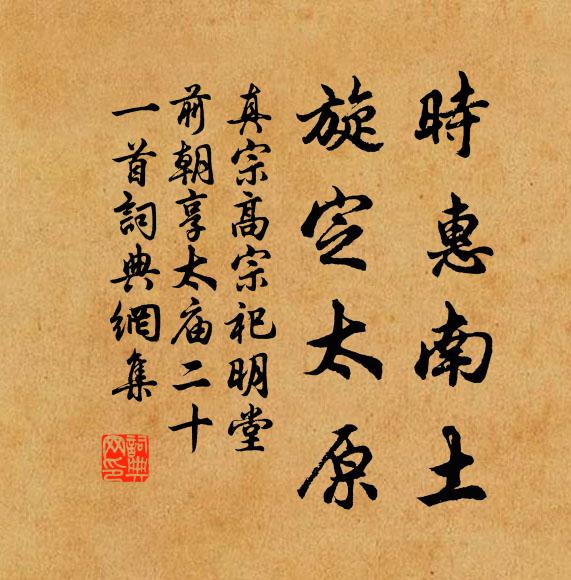 時惠南土
旋定太原
真宗高宗祀明堂
前朝享太庙二十
一首詞典網集
詞典网印